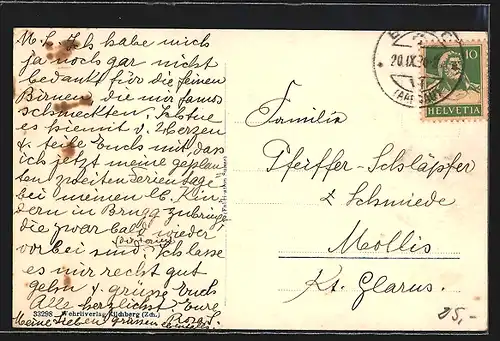 M. L. Ich habe mich
ja noch gar nicht
bedankt für die feinen
Birnen, die mir famos
schmeckten. Ich tue
es hiemit v. Herzen
& teile Euch mit, dass
ich jetzt meine geplan
ten zweiten Ferientage
bei meinen lb. Kin
dern in Brugg zubringe
die zwar bald wieder
vorbei sind. Ich lasse
es mir recht gut
gehn & grüsse Euch
Alle herzlichst Eure
Meine Lieben grüssen Rosa S.
33298 Wehrliverlag Kilchberg (Zch.)
20.IX.
(AARGAU)
10
HELVETIA
Familie
Pfeiffer-Schläpfer
z. Schmiede
Mollis
Kt. Glarus.
25,-